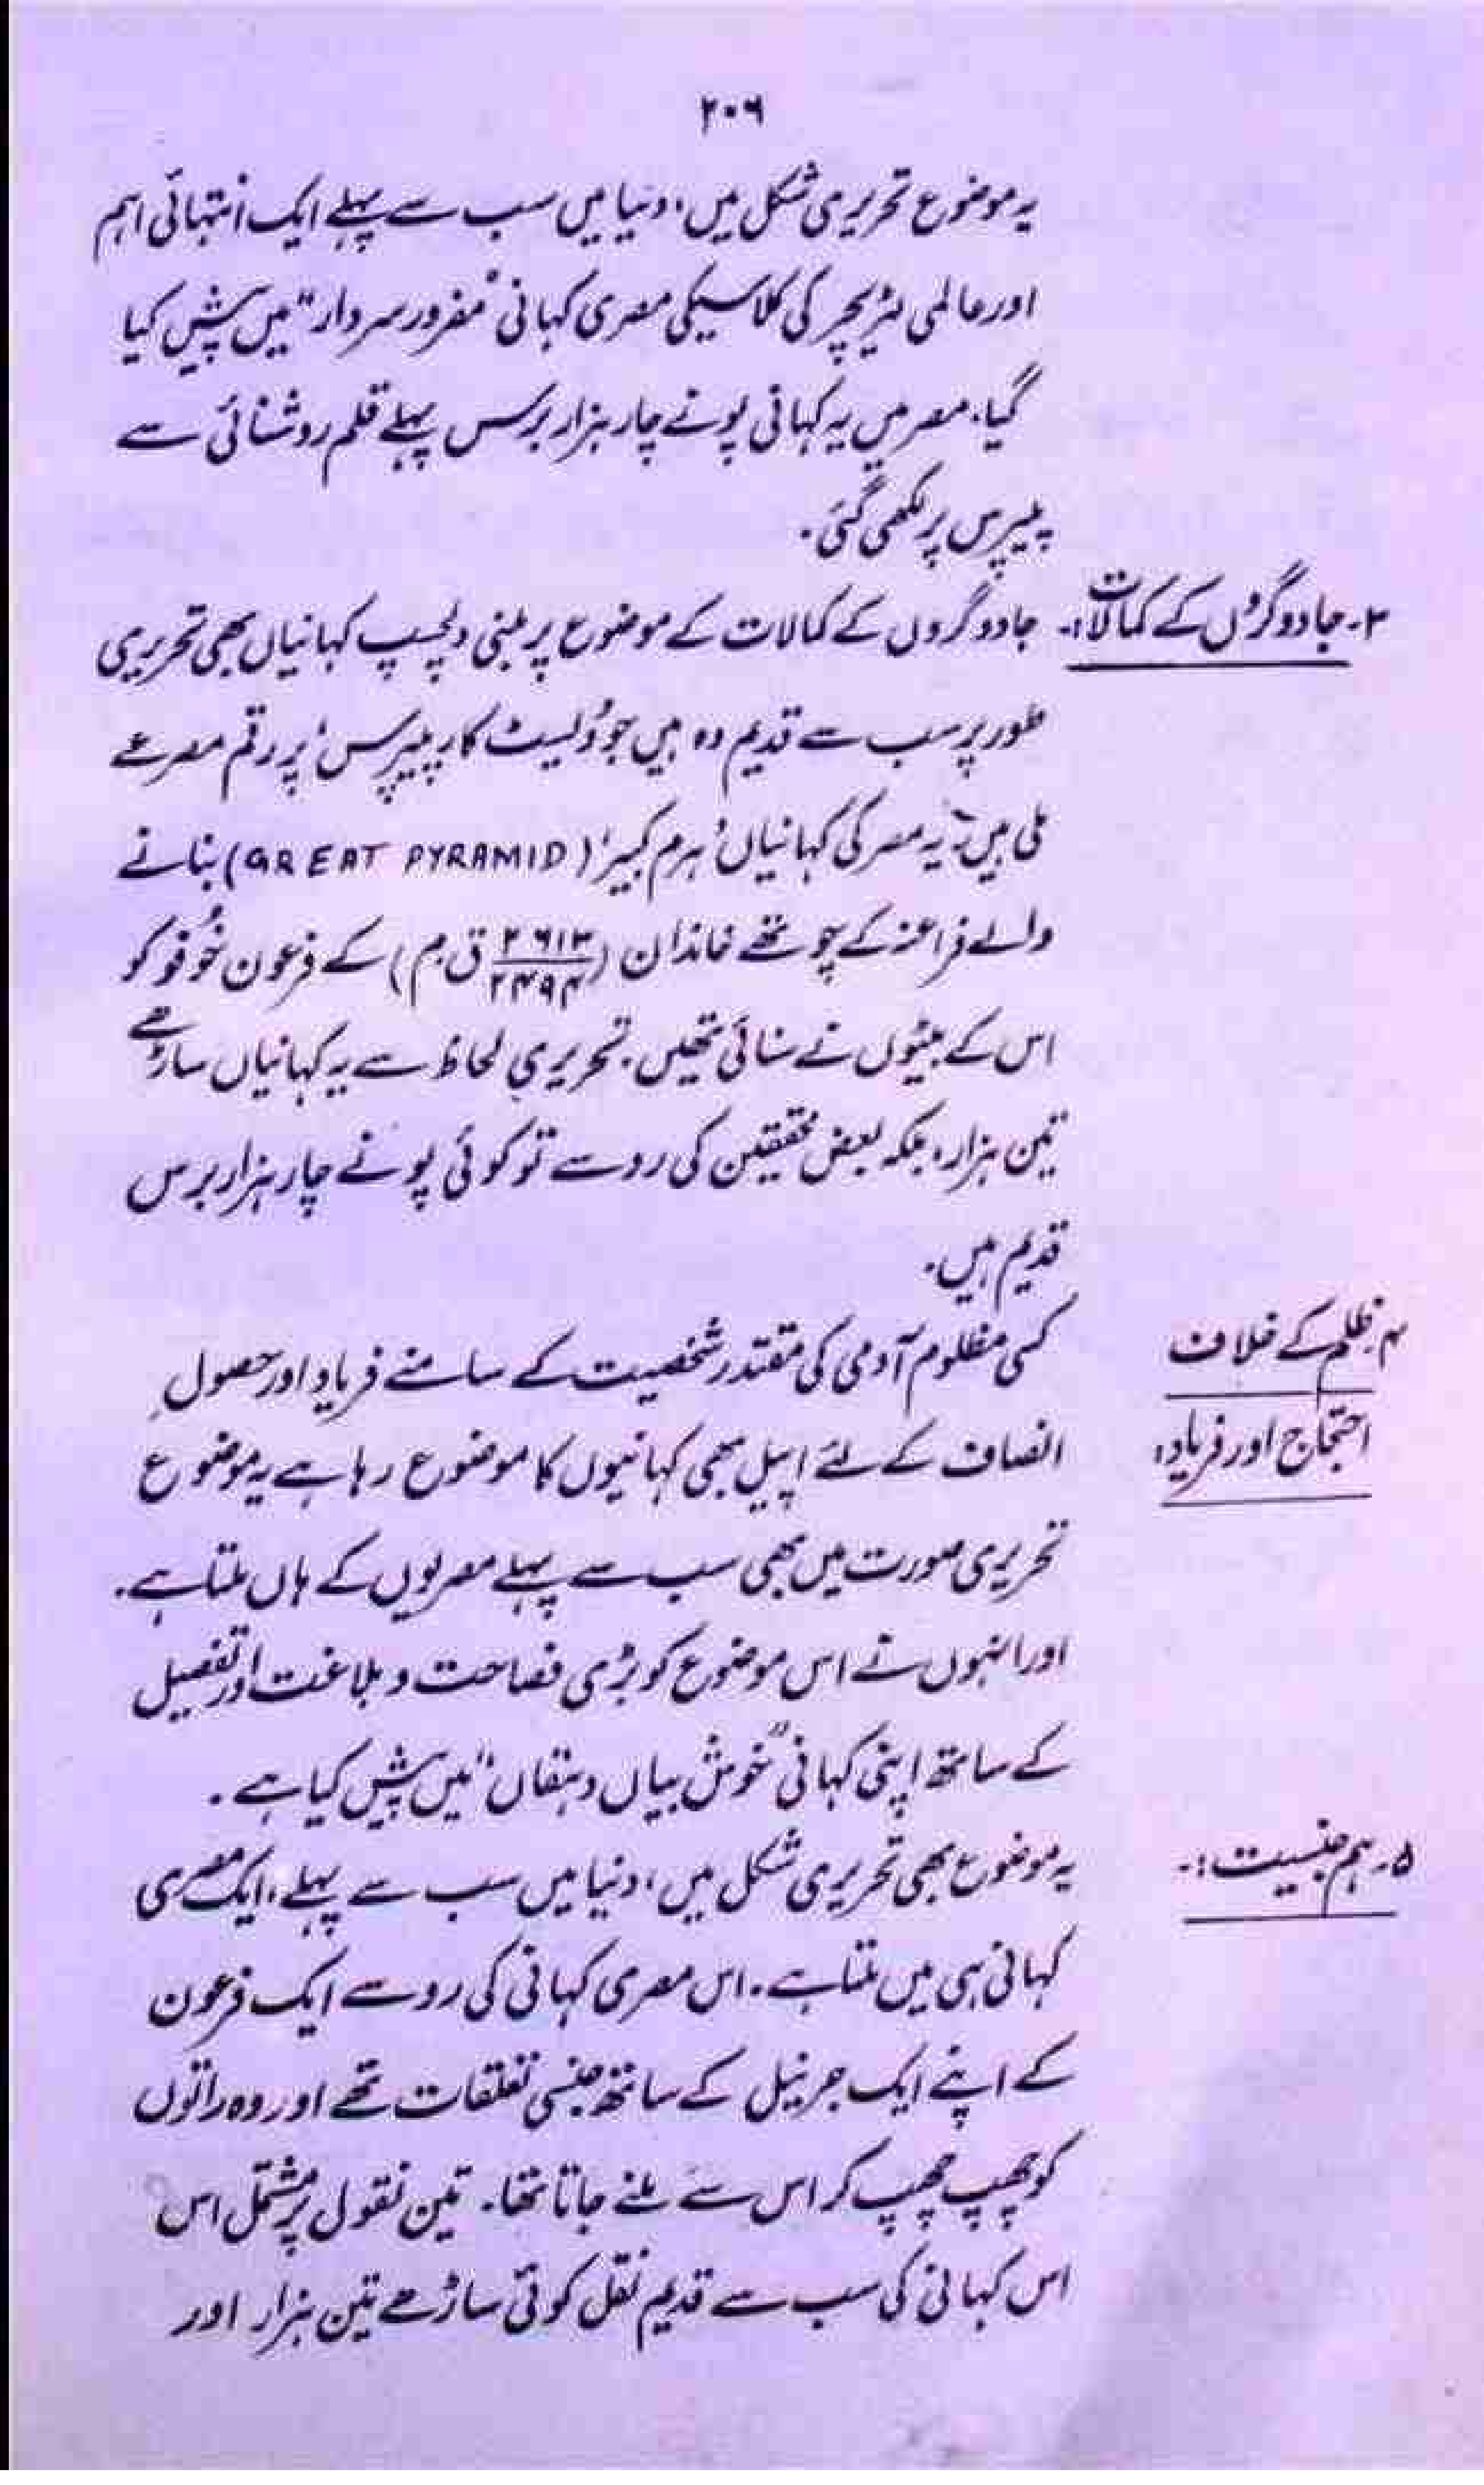 ۲۰۶
یہ موضوع تحریری شکل میں، دنیا میں سب سے پہلے ایک انتہائی اہم
اور عالمی لٹریچر کی کلاسیکی مصری کہانی "مفرور سردار" میں پیش کیا
گیا، مصر میں یہ کہانی پونے چار ہزار برس پہلے قلم روشنائی سے
پیپرس پر لکھی گئی۔
۳۔ جادوگروں کے کمالات:۔ جادوگروں کے کمالات کے موضوع پر مبنی دلچسپ کہانیاں بھی تحریری
طور پر سب سے قدیم وہ ہیں جو 'ولیسٹ کار پیپرس' پر رقم مصر سے
ملی ہیں یہ مصر کی کہانیاں 'ہرم کبیر' (GREAT PYRAMID) بنانے
والے فراعنہ کے چوتھے خاندان (۲۶۱۳/۲۴۹۴ ق م) کے فرعون خُوفو کو
اس کے بیٹوں نے سنائی تھیں۔ تحریری لحاظ سے یہ کہانیاں ساڑھے
تین ہزار، بلکہ بعض محققین کی رو سے تو کوئی پونے چار ہزار برس
قدیم ہیں۔
۴۔ ظلم کے خلاف کسی مظلوم آدمی کی مقتدر شخصیت کے سامنے فریاد اور حصولِ
احتجاج اور فریاد: انصاف کے لئے اپیل بھی کہانیوں کا موضوع رہا ہے یہ موضوع
تحریری صورت میں بھی سب سے پہلے مصریوں کے ہاں ملتا ہے۔
اور انہوں نے اس موضوع کو بڑی فصاحت و بلاغت اور تفصیل
کے ساتھ اپنی کہانی "خوش بیاں دہقاں" میں پیش کیا ہے۔
۵۔ ہم جنسیت:۔ یہ موضوع بھی تحریری شکل میں، دنیا میں سب سے پہلے، ایک مصری
کہانی ہی میں ملتا ہے۔ اس مصری کہانی کی رو سے ایک فرعون
کے اپنے ایک جرنیل کے ساتھ جنسی تعلقات تھے اور وہ راتوں
کو چھپ چھپ کر اس سے ملنے جاتا تھا۔ تین نقول پر مشتمل اس
اس کہانی کی سب سے قدیم نقل کوئی ساڑھے تین ہزار اور